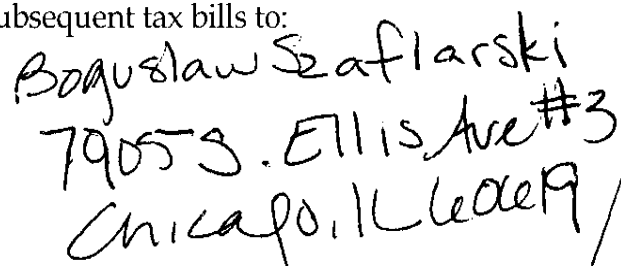 ubsequent tax bills to:
Boguslaw Szaflarski
7905 S. Ellis Ave #3
Chicago, IL 60619